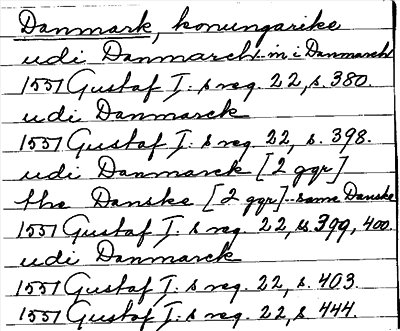 Danmark, konungarike
udi Danmarck m i Danmarck
1551 Gustaf I:s reg. 22, s. 380.
udi Danmarck
1551 Gustaf I:s reg. 22, s. 398.
udi Danmarck [2 ggr]
the Danske [2 ggr] same Danske
1551 Gustaf I:s reg. 22, s. 399, 400.
udi Danmarck
1551 Gustaf I:s reg. 22, s. 403.
1551 Gustaf I:s reg. 22, s. 444.